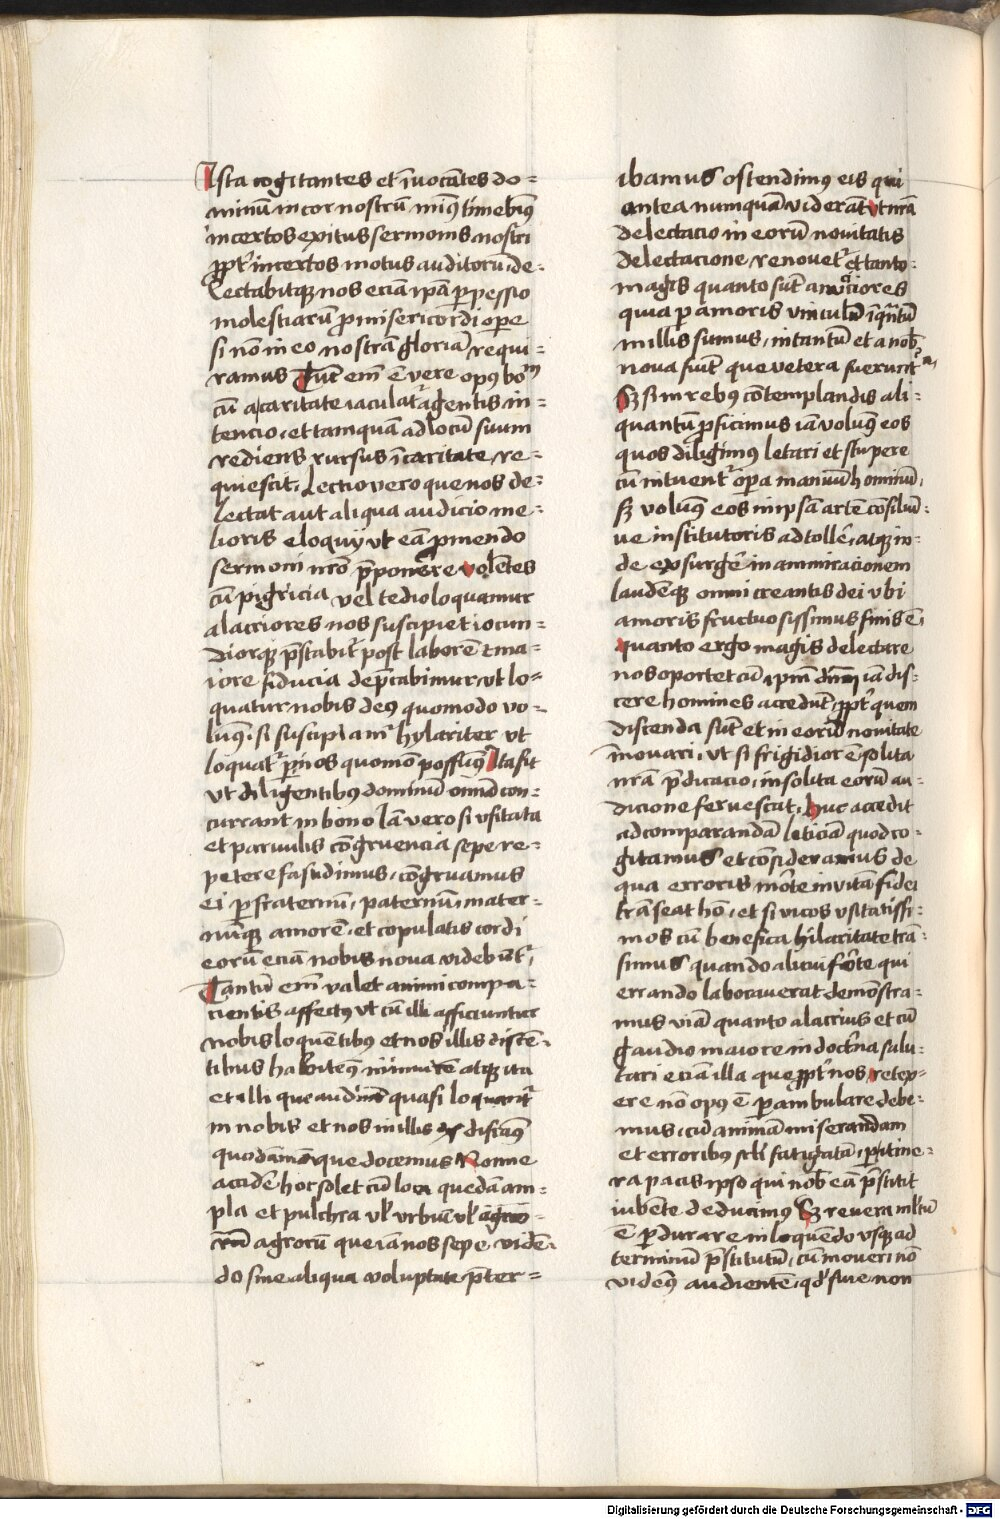 Ista cogitantes et īuocātes do=
minū in cor nostrū miꝰ timebimꝰ
incertos exitus sermonis nostri
ꝓpt' incertos motus auditorū, de=
lectabitqꝫ nos eciā ip̄a ꝑpessio
molestiarū ꝓ misericordi oꝑe
si nō in eo nostrā gloriā requi=
ramus Tūc em̄ ē vere opꝰ boᵐ
cū a caritate iaculat' agentis in=
tencio, et tamquā ad locū suum
rediens rursus ī caritate re=
quiescit, Lectio vero que nos de=
lectat aut aliqua audicio me=
lioris eloquij vt eā ꝓmendo
sermoni nr̄o p̄ponere volētes
cū pigricia vel tedio loquamur
alacriores nos suscipiet iocun=
diorqꝫ p̄stabit' post laborē Et ma=
iore fiducia dep̄cabimur, vt lo=
quatur nobis deꝰ quomodo vo=
lumꝰ, si suscipiam' hylariter vt
loquat' ꝑ nos quomō possumꝰ Ita fit
vt diligentibꝰ dominū oīa con=
currant in bono Iā vero si vsitata
et paruulis cōgruencia sepe re=
petere fastidimus, cōgruamus
ei ꝑ fraternū, paternū, mater=
nūqꝫ amorē, et copulatis cordi
eorū eciā nobis noua videbūt',
Tantū em̄ valet animi compa=
cientis affectꝰ vt cū illi afficiuntur
nobis loquētibꝰ et nos illis discē=
tibus habitemꝰ in inuicē atqꝫ ita
et illi que audiūt quasi loquant'
in nobis et nos in illis discamꝰ
quodāmō que docemus Nonne
accidē hoc solet cū loca quedā am=
pla et pulchra vl' vrbiū vl'
agrorū que iā nos sepe vidē=
do sine aliqua voluptate p̄ter=
ibamus ostendimꝰ eis qui
antea numquā viderāt vt nr̄a
delectacio in eorū nouitatis
delectacione renouet' et tanto
magis quanto sūt amiciores
quia ꝑ amoris vinculū īqn̄tū
in illis sumus, in tantū et a nob̄
noua fiūt que vetera fuerunt
Sꝫ si in rebꝰ cōtemplandis ali=
quantū ꝓficimus iā volumꝰ eos
quos diligimꝰ letari et stupere
cū intuent' oꝑa manuū hominū,
sꝫ volumꝰ eos in ip̄sā artē cōsiliū=
ve institutoris adtollē, atqꝫ in=
de exsurgē in ammiracionem
laudēqꝫ omni creantis dei vbi
amoris fructuosissimus finis ē,
quanto ergo magis delectare
nos oportet cū ip̄m dn̄m iā dis=
cere homines accedūt, ꝓpt' quem
discenda sūt et in eorū nouitate
īnouari, vt si frigidior ē solita
nr̄a p̄dicacio, insolita eorū au=
dicione feruescat, huc accedit
ad comparandā leticiā quod co=
gitamus et cōsideramus de
qua erroris mōrte in vitā fidei
trāseat hō, et si vicos vsitatissi=
mos cū benefica hilaritate trā=
simus quando alicui fōrte qui
errando laborauerat demōstra=
mus viā quanto alacrius et cū
gaudio maiore in doctrīa salu=
tari eciā illa que ꝓpt' nos retex=
ere nō opꝰ ē ꝑambulare debe=
mus, cū animā miserandam
et erroribꝰ scl'i fatigatā, ꝑ itine=
ra pacis ipso qui nob̄ eā p̄stitit
iubēte deducimꝰ Sꝫ reuera ml'tū
ē ꝑdurare in loquēdo vsqꝫ ad
terminū p̄stitutū, cum moueri nō
videmꝰ audientē, qd' siue non
Digitalisierung gefördert durch die Deutsche Forschungsgemeinschaft - DFG